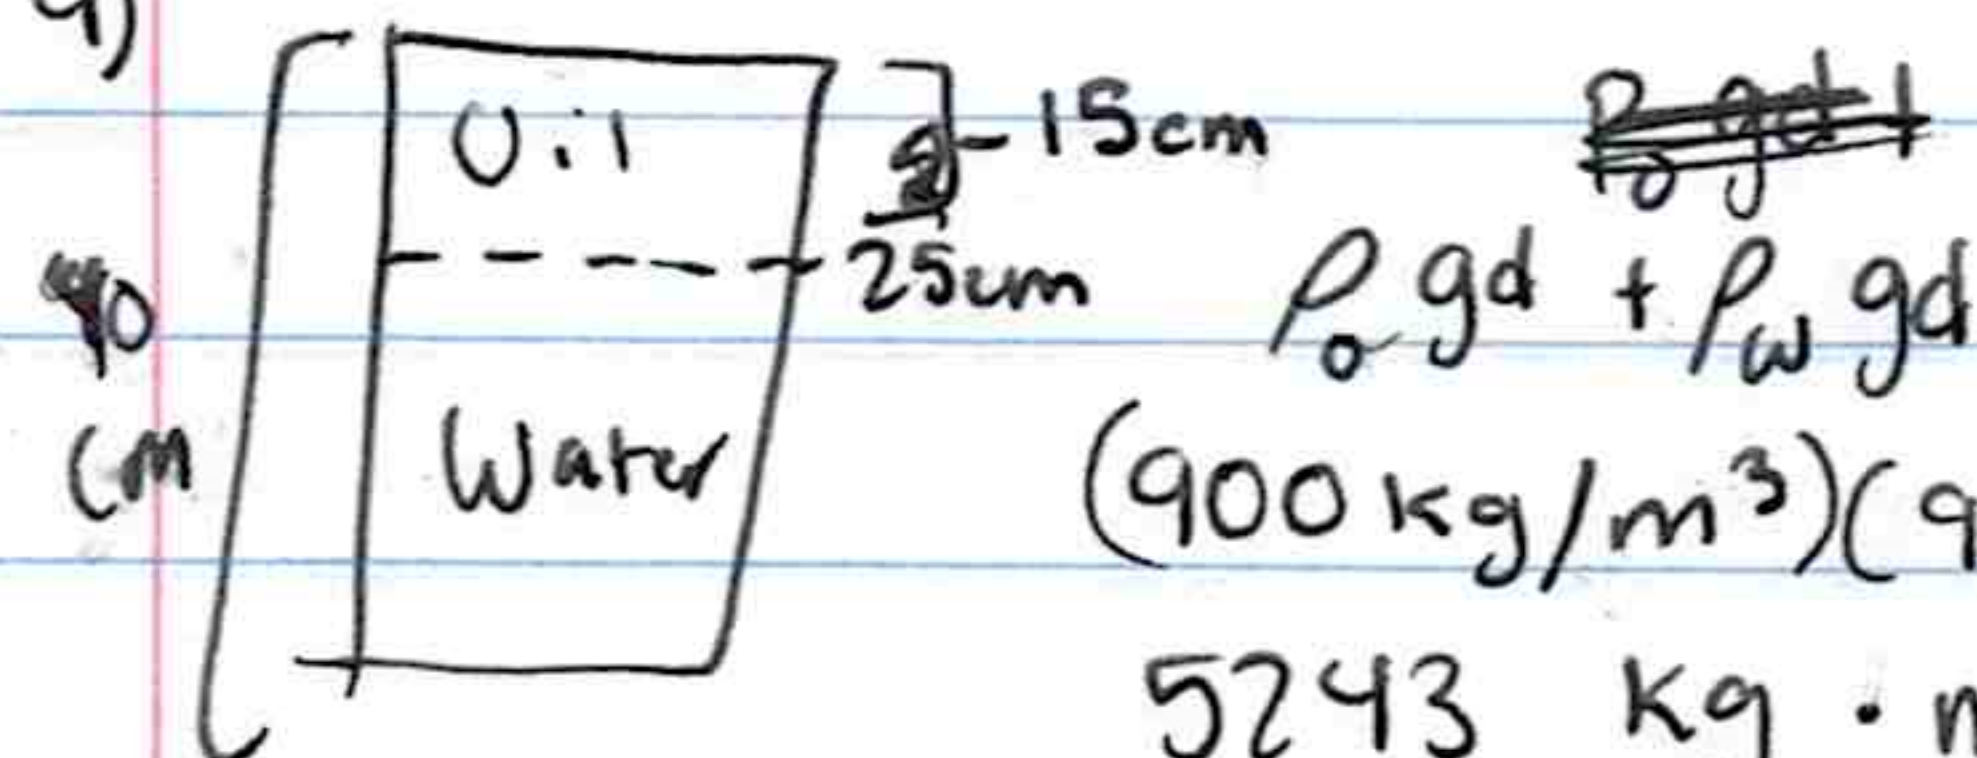 9)
Oil
15cm
25cm
40
cm
Water
ρₒ gd + ρw gd
(900 kg/m³)(9
5243 kg ·